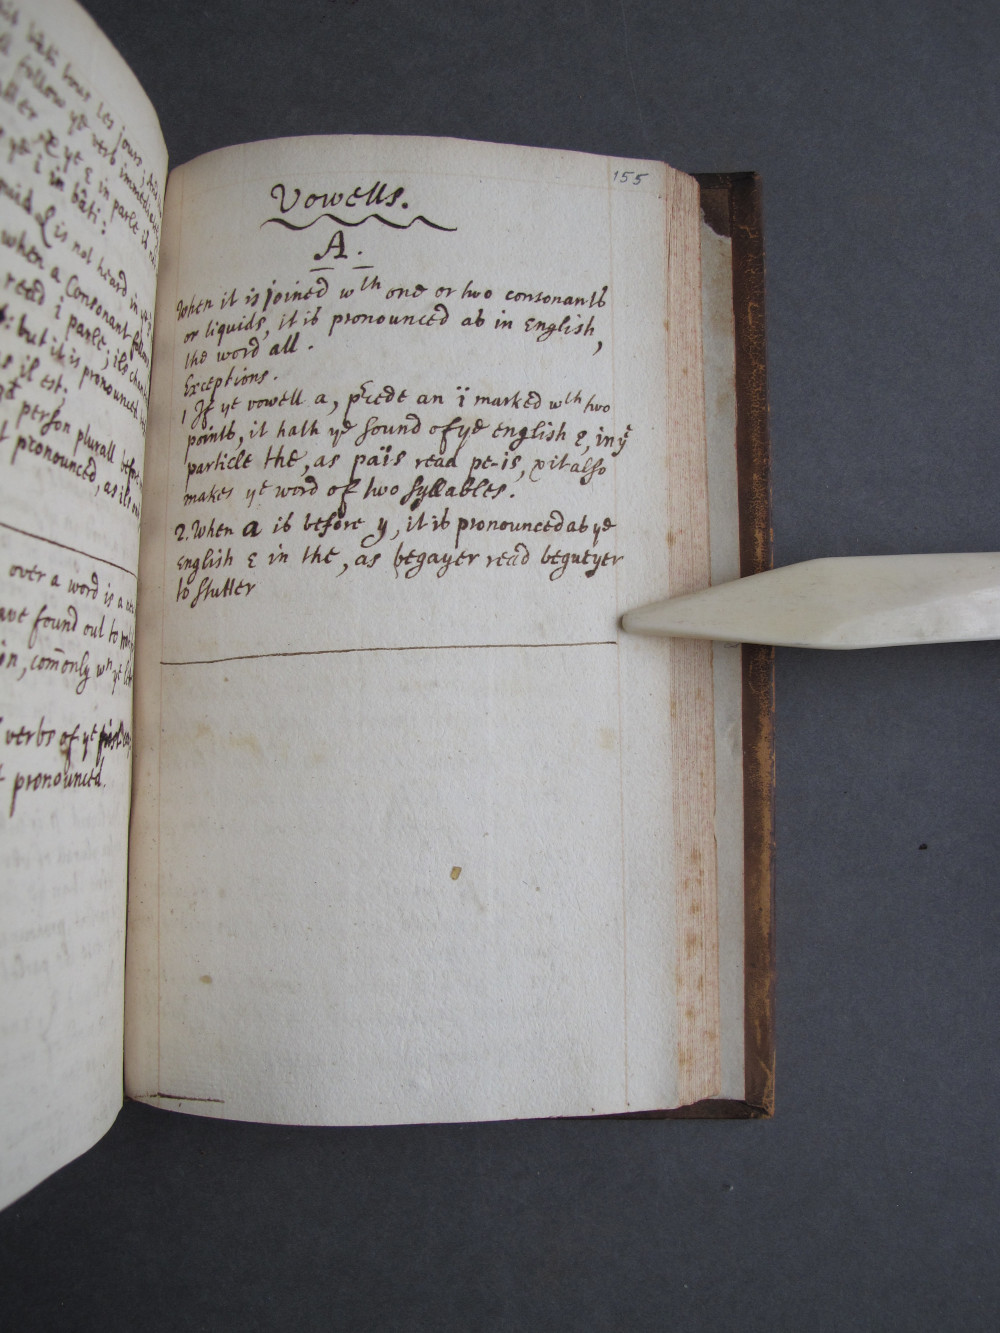 bâti tous les jours; And
follow yᵉ verb immediat
yᵉ E in parle it
yᵉ i in bâti:
is not heard in yᵉ
when a Consonant follow
read i parle; ils chan
: but it is pronounced
s il est,
person plurall before
pronounced, as ils
over a word is a
ave found out to
on, com̄only wⁿ yᵉ
verbs of yᵉ first
pronounced.
155
Vowells.
A.
When it is joined wᵗʰ one or two consonants
or liquids, it is pronounced as in English,
the word all.
Exceptions.
1 If yᵉ vowell a, p̄cede an ï marked wᵗʰ two
points, it hath yᵉ sound of yᵉ english e, in yᵉ
particle the, as païs read pe-is, & it also
makes yᵉ word of two syllables.
2. When a is before y, it is pronounced as yᵉ
English E in the, as begayer read begueyer
to stutter